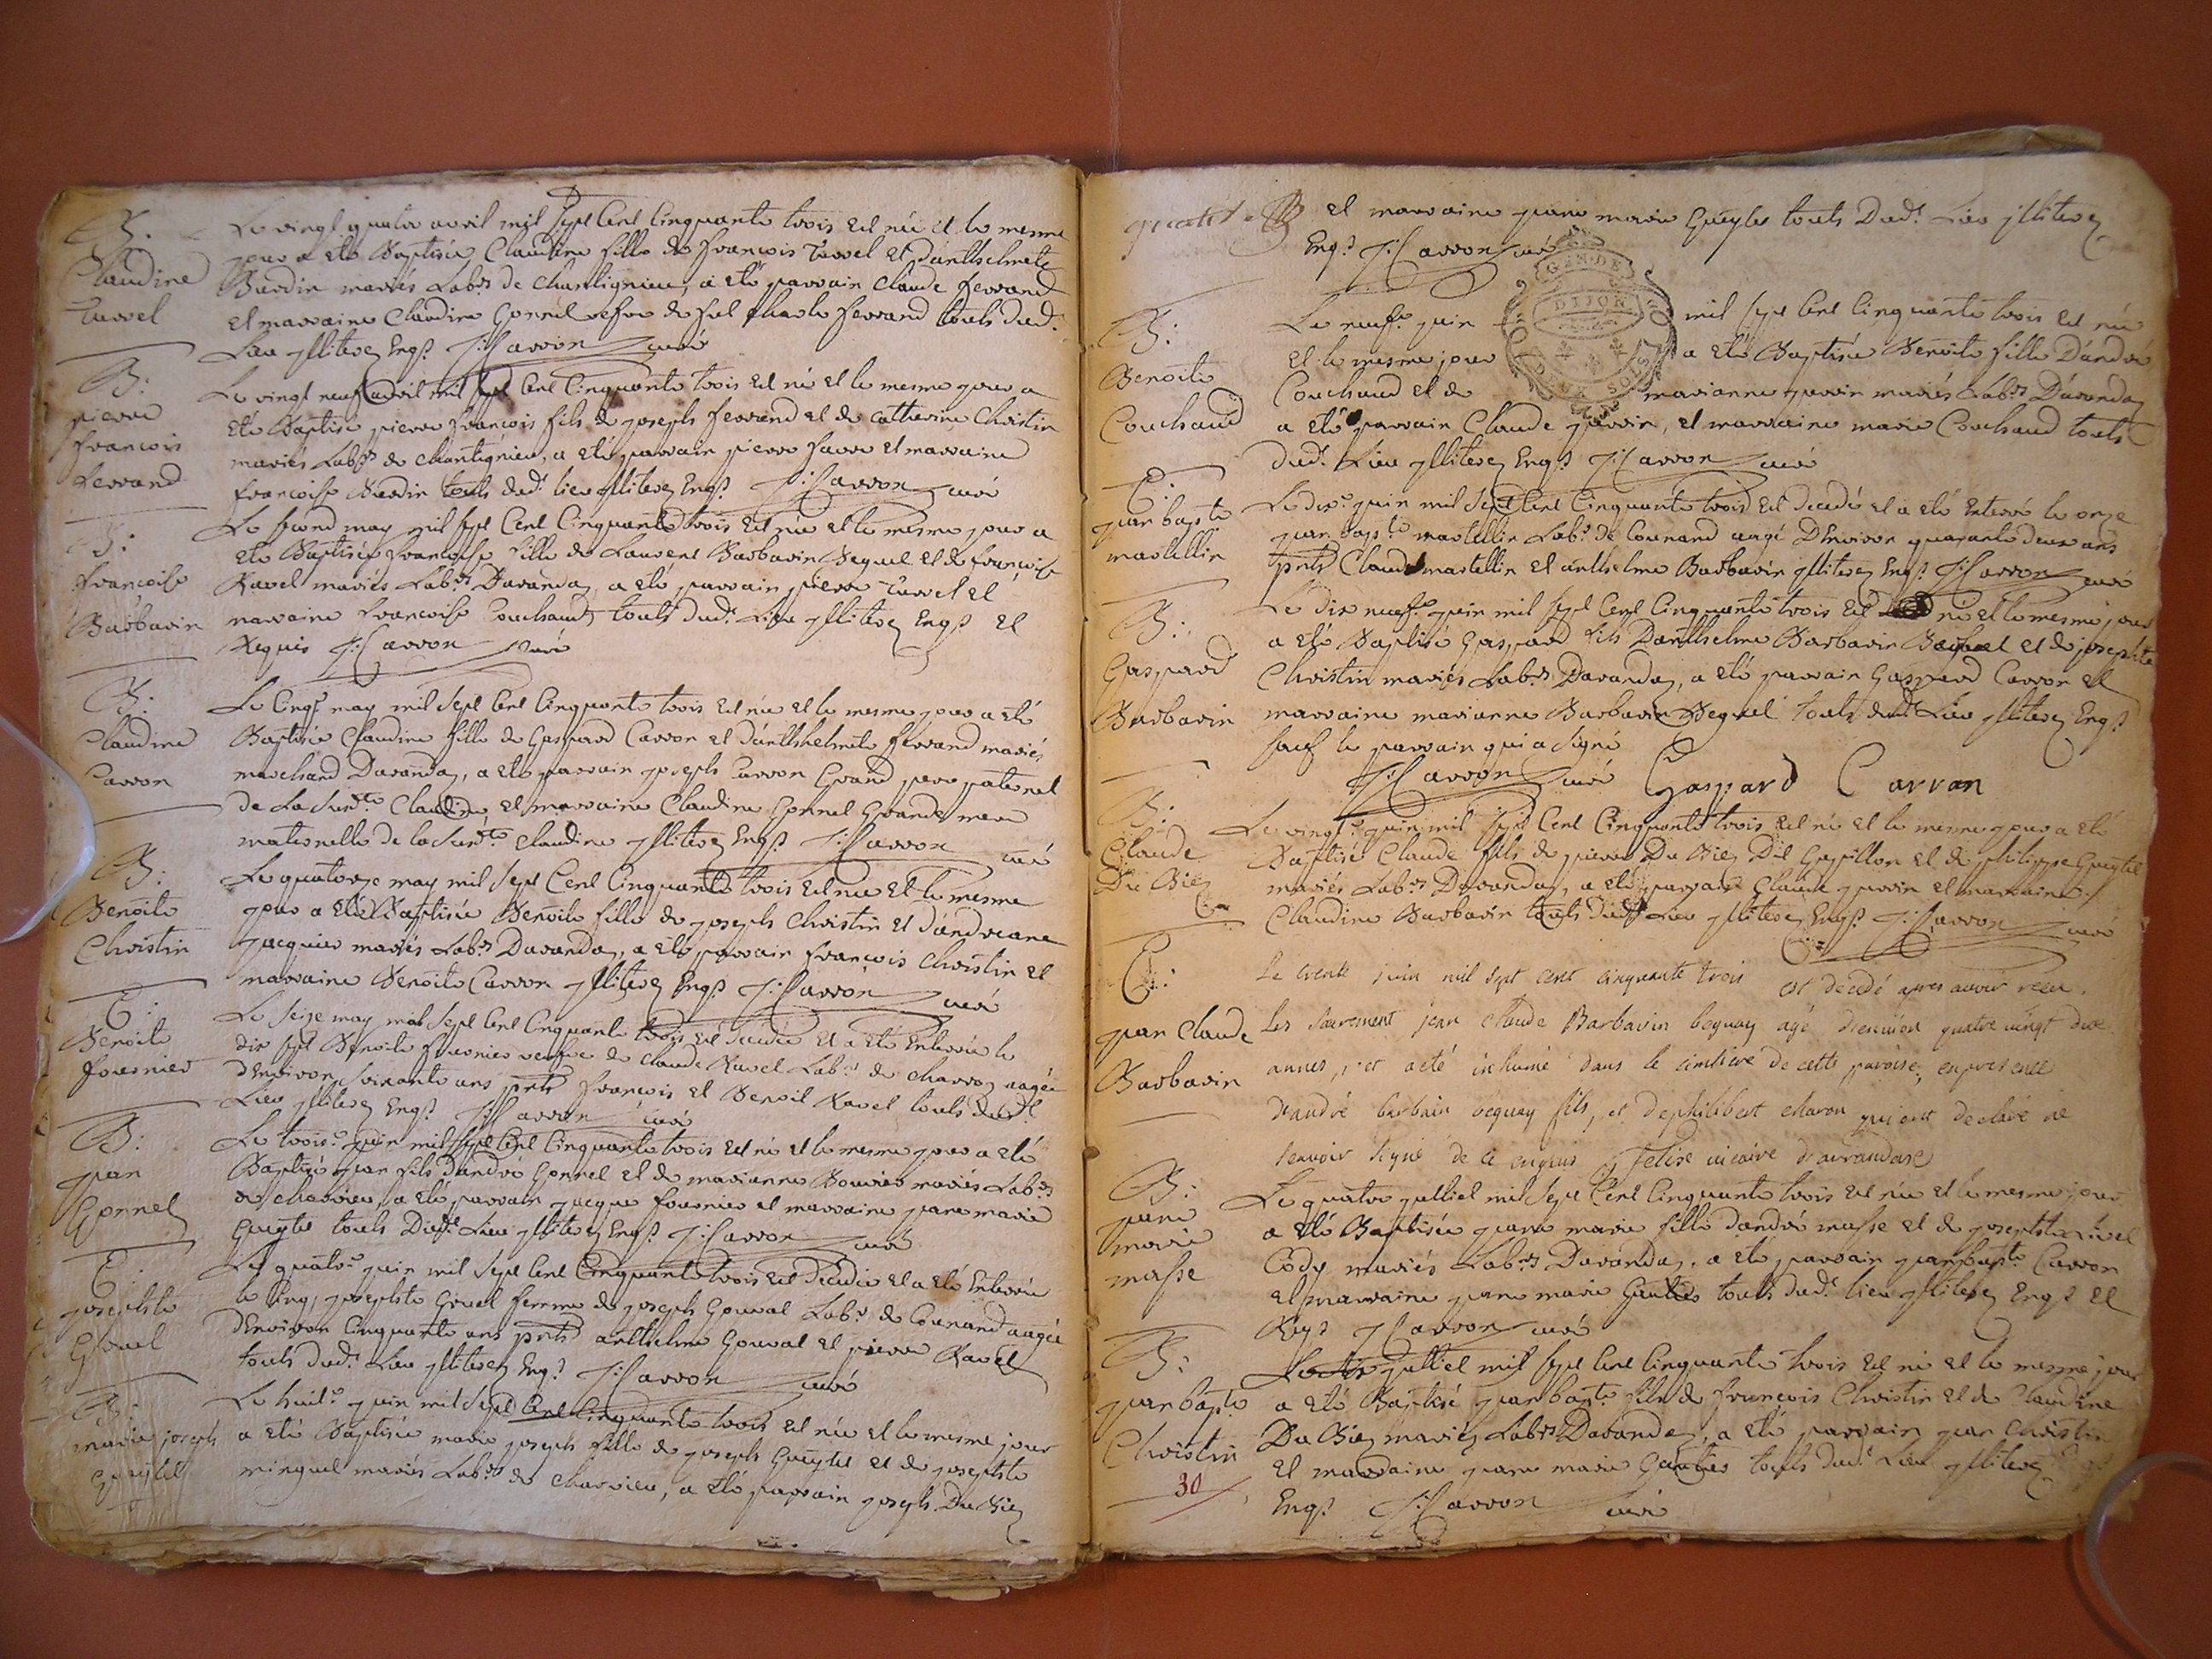 B.
Claudine
Turrel
Le vingt quatre avril mil sept Cent Cinquante trois est née et le mesme
jour a eté Baptisée Claudine fille de françois Turrel et d'anthelmete
Burdin mariés Labrs de Chantignieu, a eté parrain Claude ferrand
et marraine Claudine Gonnel vefve de feu Charle ferrand touts dudt
Lieu illiterez Enqs J: Carron curé
B:
pierre
françois
ferrand
Le vingt neuf avril mil sept Cent Cinquante trois est né et le mesme jour a
eté Baptisé pierre françois fils de joseph ferrand et de catherine Christin
mariés Labrs de Chantignieu, a eté parrain pierre favre et marraine
françoise Burdin touts dudt lieu illiterez Enqs J: Carron curé
B:
françoise
Barbarin
Le second may mil sept Cent Cinquante trois est née et le mesme jour a
eté Baptisée françoise fille de Laurent Barbarin Bequet et de françoise
Ravel mariés Labrs D'aranday, a eté parrain pierre Turrel et
marraine françoise Couchaud touts dudt Lieu illiterez Enqs et
Requis J: Carron curé
B:
Claudine
Carron
Le Cinqe may mil sept Cent Cinquante trois est née et le mesme jour a eté
Baptisée Claudine fille de Gaspard Carron et d'anthelmete ferrand mariés
marchand Daranday, a eté parrain joseph Carron Grand pere paternel
de La susdte Claudine, et marraine Claudine Gonnel Grande mere
maternelle de la susdte Claudine illiterez Enqs J: Carron curé
B:
Benoite
Christin
Le quatorze may mil sept Cent Cinquante trois est née et le mesme
jour a eté Baptisée Benoite fille de joseph Christin et d'andreane
jacquier mariés Labrs Daranday, a eté parrain françois Christin et
marraine Benoite Carron illiterez Enqs J: Carron curé
E:
Benoite
fournier
Le seize may mil sept Cent Cinquante trois est decedée et a eté Enterrée le
dix sept Benoite fournier vefve de Claude Ravel Labr de Charvey aagée
d'Environ soixante ans pnts françois et Benoit Ravel touts dudt
Lieu illiterez Enqs J: Carron curé
B:
jean
Gonnel
Le troise juin mil sept Cent Cinquante trois est né et le mesme jour a eté
Baptisé jean fils d'andré Gonnel et de marianne Bouvier mariés Labrs
de Charvieu, a eté parrain jacque fournier et marraine jeane marie
Gueytet touts Dudt Lieu illiterez Enqs J: Carron curé
E:
josephte
Gruel
Le quatre juin mil sept Cent Cinquante trois est decedée et a eté Enterrée
le Cinq, josephte Gruel femme de joseph Gouval Labr de Counand aagée
d'Environ Cinquante ans pnts anthelme Gouval et pierre Ravel
touts dudt Lieu illiterez Enqs J: Carron curé
B:
marie joseph
Gueytet
Le huite juin mil sept Cent Cinquante trois est née et le mesme jour
a eté Baptisée marie joseph fille de joseph Gueytet et de josephte
minguet mariés Labrs de Charvieu, a eté parrain joseph Du Biez
et marraine jeane marie Gueytet touts Dudt Lieu illiterez
Enqs J: Carron curé
GEN. DE
DIJON
DEUX SOLS
B:
Benoite
Couchaud
Le neufe juin mil sept Cent Cinquante trois est née
et le mesme jour a eté Baptisée Benoite fille D'andré
Couchaud et de marianne juvin mariés Labrs D'aranday
a eté parrain Claude juvin, et marraine marie Couchaud touts
dudt Lieu illiterez Enqs J: Carron curé
E:
jean bapte
martellin
Le dixe juin mil sept Cent Cinquante trois est decedé et a eté Enterré le onze
jean bapte martellin Labr de Counand aagé D'Environ quarante deux ans
pnts Claude martellin et anthelme Barbarin illiterez Enqs J: Carron curé
B:
Gaspard
Barbarin
Le dix neufe juin mil sept Cent Cinquante trois est né et le mesme jour
a eté Baptisé Gaspard fils D'anthelme Barbarin Bequet et de josephte
Christin mariés Labrs Daranday, a eté parrain Gaspard Carron et
marraine marianne Barbarin Bequet touts dudt Lieu illiterez Enqs
sauf le parrain qui a signé
J: Carron curé Gaspard Carran
B:
Claude
Du Biez
Le vingte juin mil sept Cent Cinquante trois est né et le mesme jour a eté
Baptisé Claude fils de pierre Du Biez Dit Gripillon et de philippe Gueytet
mariés Labrs Daranday, a eté parrain Claude juvin et marraine
Claudine Barbarin touts dudt Lieu illiterez Enqs J: Carron curé
E:
jean Claude
Barbarin
Le trente juin mil sept cent cinquante trois est decedé apres auoir receu
Les sacrement jean claude Barbarin bequay agé d'enuiron quatre uingt deux
annes, et aeté inhumé dans le cimitiere de cette paroise, enpresence
d'andré barbain bequay fils, et dephilibert charon qui ont declaré ne
scauoir signé de ce enquis felise uicaire d'arrandas
B:
jeane
marie
masse
Le quatre julliet mil sept Cent Cinquante trois est née et le mesme jour
a eté Baptisée jeane marie fille d'andré masse et de josephte
Cody mariés Labrs Daranday, a eté parrain jean bapte Carron
et marraine jeane marie Gautier touts dudt lieu illiterez Enqs et
Reqs J: Carron curé
B:
jean bapte
Christin
Le dix julliet mil sept Cent Cinquante trois est né et le mesme jour
a eté Baptisé jean bapte fils de françois Christin et de Claudine
Du Biez mariez Labrs Daranday, a eté parrain jean Christin
et marraine jeane marie Gautier touts dudt Lieu illiterez
Enqs J: Carron curé
30